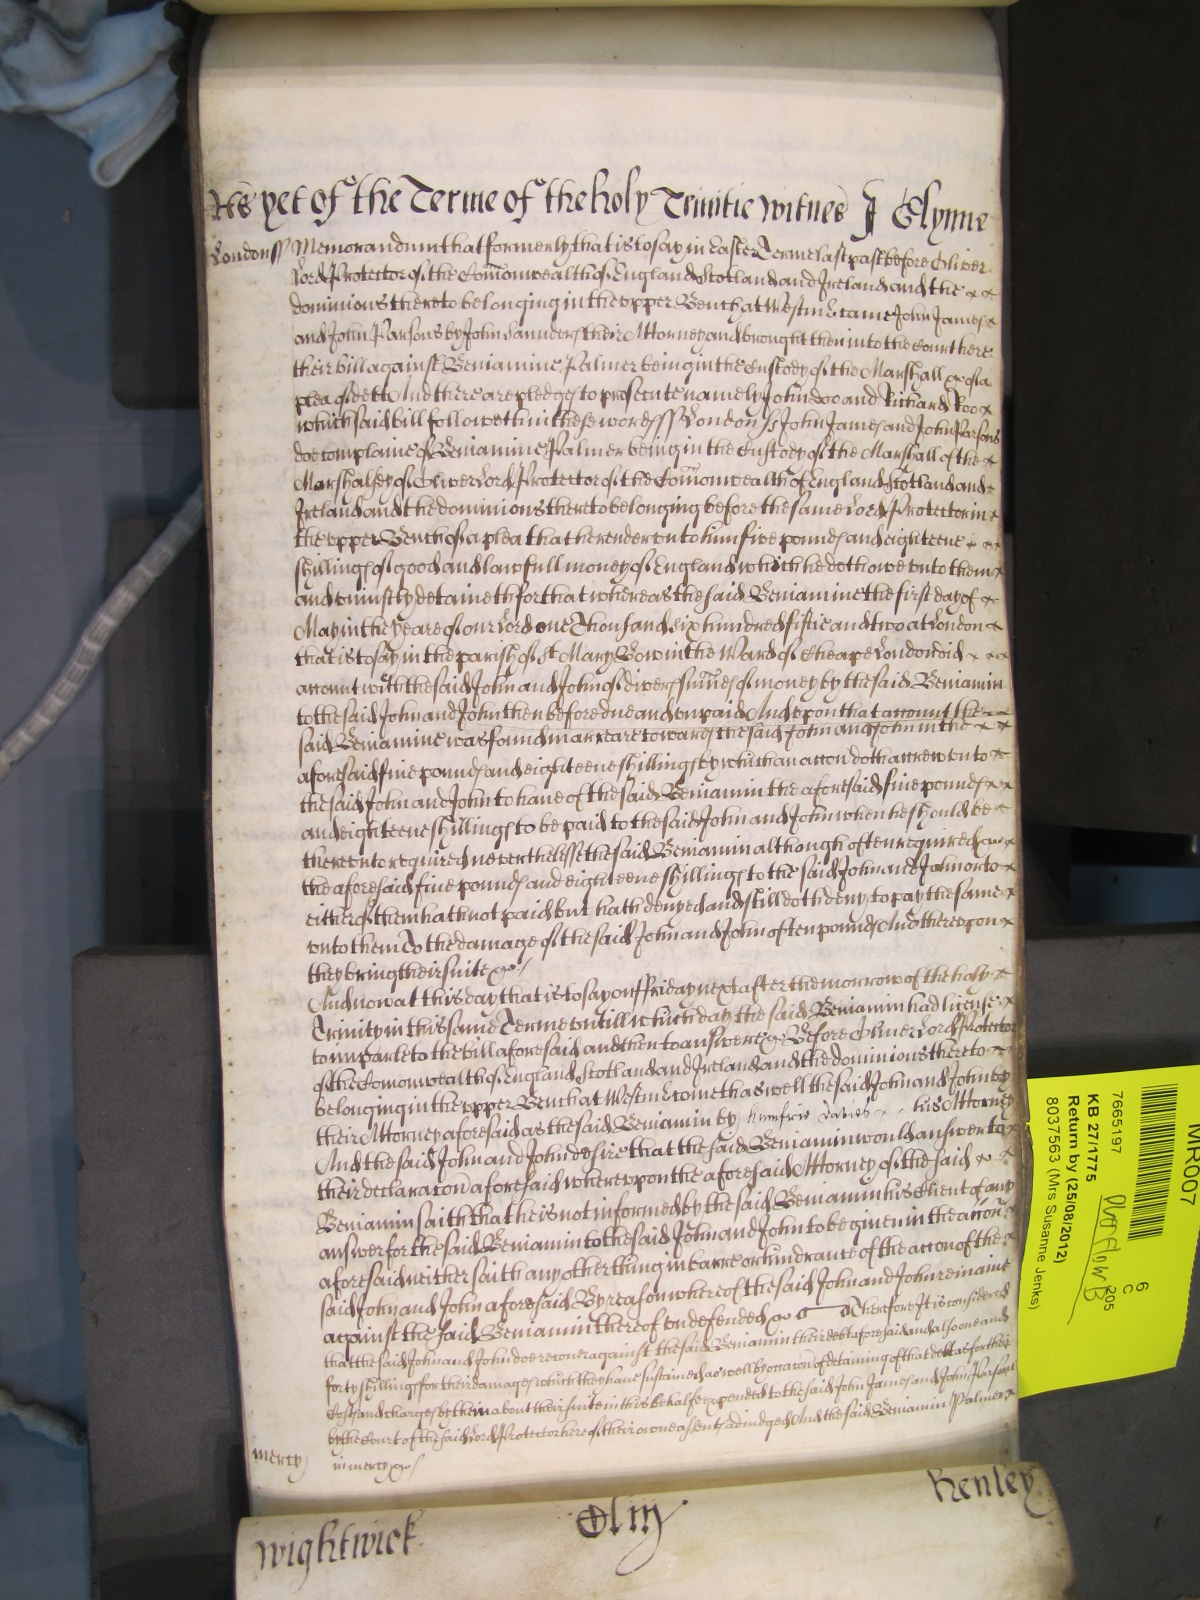 As yet of the Terme of the holy Trinitie Witnes J Glynne
London ss Memorandum that formerly that is to say in Easter Terme last past before Oliver
Lord Protector of the Comonwealth of England Scotland and Ireland and the
dominions thereto belonging in the upper Bench at Westmr came John James
and John Parsons by John Saunders their Attorney and brought then into the Court here
their bill against Beniamine Palmer being in the Custody of the Marshall &c of a
plea of debt And there are pledges to prosecute namely John Doo and Richard Roo
which said bill followeth in these words ss London ss John James and John Parsons
doe complaine of Beniamine Palmer being in the Custody of the Marshall of the
Marshalsey of Oliver Lord Protector of the Comonwealth of England Scotland and
Ireland and the dominions thereto belonging before the same Lord Protector in
the upper Bench of a plea that he render unto him five pounds and eighteene
shillings of good and lawfull money of England which he doth owe unto them
and uniustly detaineth for that whereas the said Beniamine the first day of
May in the yeare of our Lord one Thousand six hundred fiftie and two at London
that is to say in the parish of St Mary Bow in the Ward of Cheape London did
account with the said John and John of divers sumes of money by the said Beniamin
to the said John and John then before due and unpaid And upon that account the
said Beniamine was found in arreare towards the said John and John in the
aforesaid five pounds and eighteene shillings by which an accon doth accrew unto
the said John and John to have of the said Beniamin the aforesaid five pounds
and eighteene shillings to be paid to the said John and John when he should be
thereunto required neverthelesse the said Beniamin although often required &c
the aforesaid five pounds and eighteene shillings to the said John and John or to
either of them hath not paid but hath denyed and still doth deny to pay the same
unto them To the damage of the said John and John of ten pounds And thereupon
they bring their suite &c
And now at this day that is to say on ffriday next after the morrow of the holy
Trinity in this same Terme untill which day the said Beniamin had license
to imparle to the bill aforesaid and then to answere &c Before Oliver Lord Protector
of the Comonwealth of England Scotland and Ireland and the dominions thereto
belonging in the upper Bench at Westmr cometh aswell the said John and John by
their Attorney aforesaid as the said Beniamin by Humfrie Davies his Attorney
And the said John and John desire that the said Beniamin would answer to
their declaracon aforesaid whereupon the aforesaid Attorney of the said
Beniamin saith that he is not informed by the said Beniamin his Client of any
answer for the said Beniamin to the said John and John to be given in the accon
aforesaid neither saith any other thing in barre or hindrance of the accon of the
said John and John aforesaid By reason whereof the said John and John remaine
against the said Beniamin thereof undefended &c Therefore It is considered
that the said John and John doe recover against the said Beniamin their debt aforesaid and also one and
forty shillings for their damages which they have sustained as well by occacon of detaining of that debt as for their
Costs and charges by them about their suite in this behalfe expended to the said John James and John Parsons
by the Court of the said Lord Protector here of their owne assents adiudged And the said Beniamin Palmer
mercy in mercy &c
Wightwick Henley
MR007
7665197
KB 27/1775
Return by (25/08/2012)
8037563 (Mrs Susanne Jenks)
6
C
205